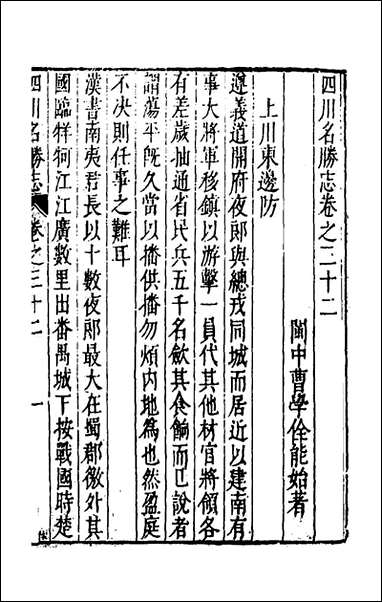 四川名勝志卷之二十二
閩中曹學佺能始著
上川東邊防
遵義道開府夜郎與總戎同城而居近以建南有
事大將軍移鎮以游擊一員代其他材官將領各
有差歲抽通省民兵五千名歛其食餉而已說者
謂蕩平旣久當以播供播勿煩内地為也然盈庭
不决則任事之難耳
漢書南夷君長以十數夜郎最大在蜀郡徼外其
國臨牂牁江江廣數里出番禺城下按戰國時楚
四川名勝志 卷之三十二 一